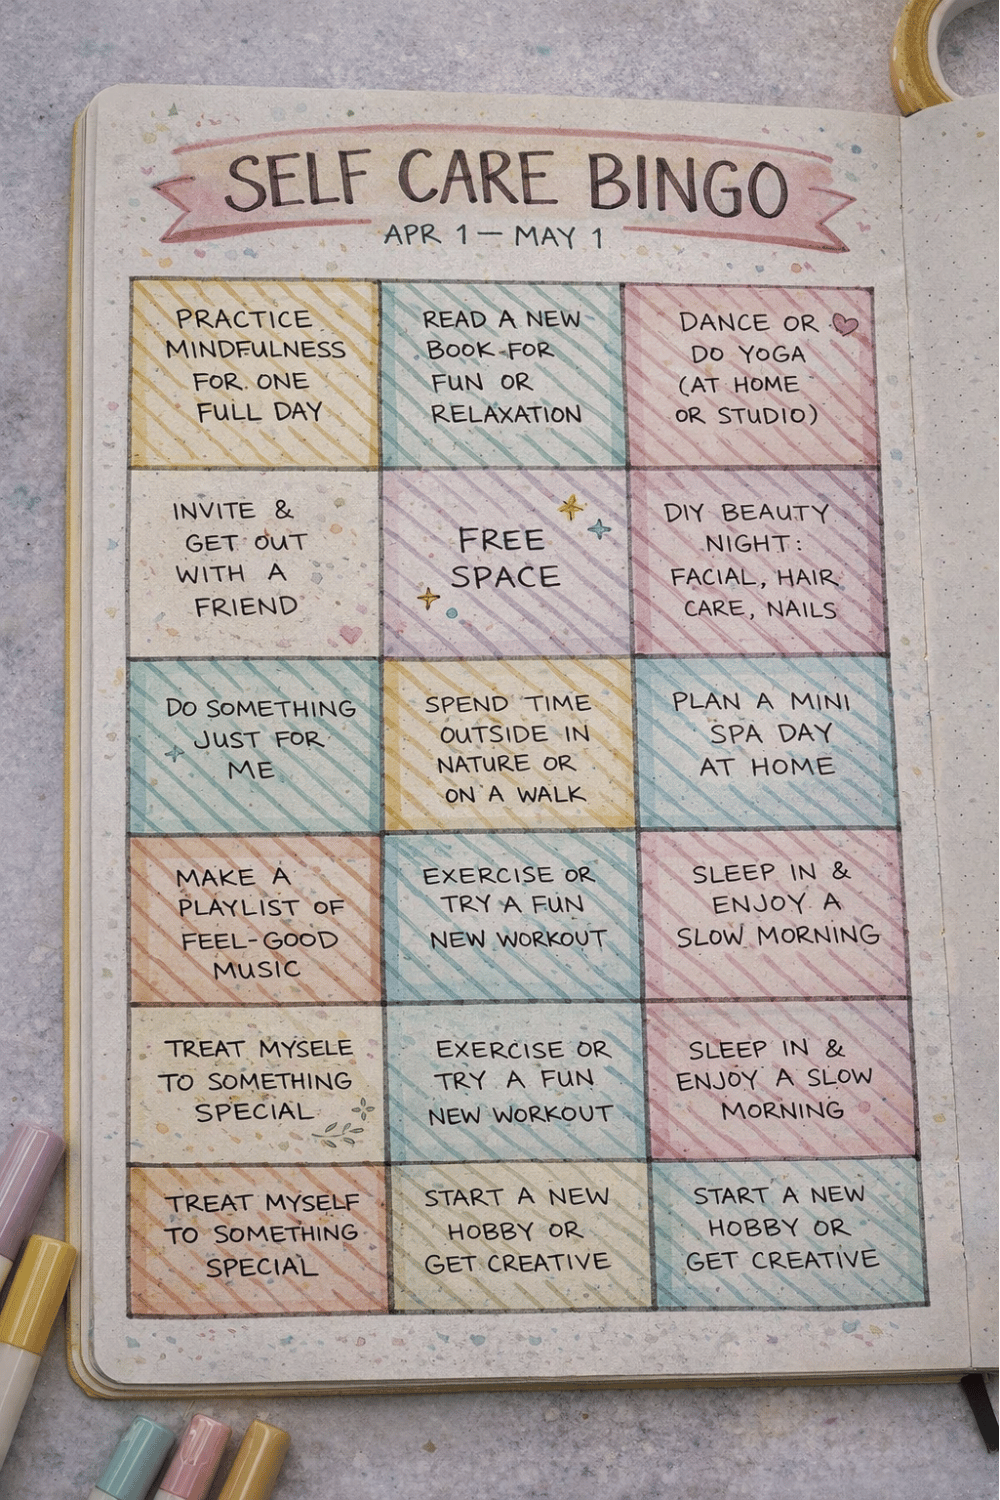 SELF CARE BINGO
APR 1 — MAY 1
PRACTICE
MINDFULNESS
FOR ONE
FULL DAY
READ A NEW
BOOK FOR
FUN OR
RELAXATION
DANCE OR
DO YOGA
(AT HOME
OR STUDIO)
INVITE &
GET OUT
WITH A
FRIEND
FREE
SPACE
DIY BEAUTY
NIGHT:
FACIAL, HAIR
CARE, NAILS
DO SOMETHING
JUST FOR
ME
SPEND TIME
OUTSIDE IN
NATURE OR
ON A WALK
PLAN A MINI
SPA DAY
AT HOME
MAKE A
PLAYLIST OF
FEEL-GOOD
MUSIC
EXERCISE OR
TRY A FUN
NEW WORKOUT
SLEEP IN &
ENJOY A
SLOW MORNING
TREAT MYSELE
TO SOMETHING
SPECIAL
EXERCISE OR
TRY A FUN
NEW WORKOUT
SLEEP IN &
ENJOY A SLOW
MORNING
TREAT MYSELF
TO SOMETHING
SPECIAL
START A NEW
HOBBY OR
GET CREATIVE
START A NEW
HOBBY OR
GET CREATIVE